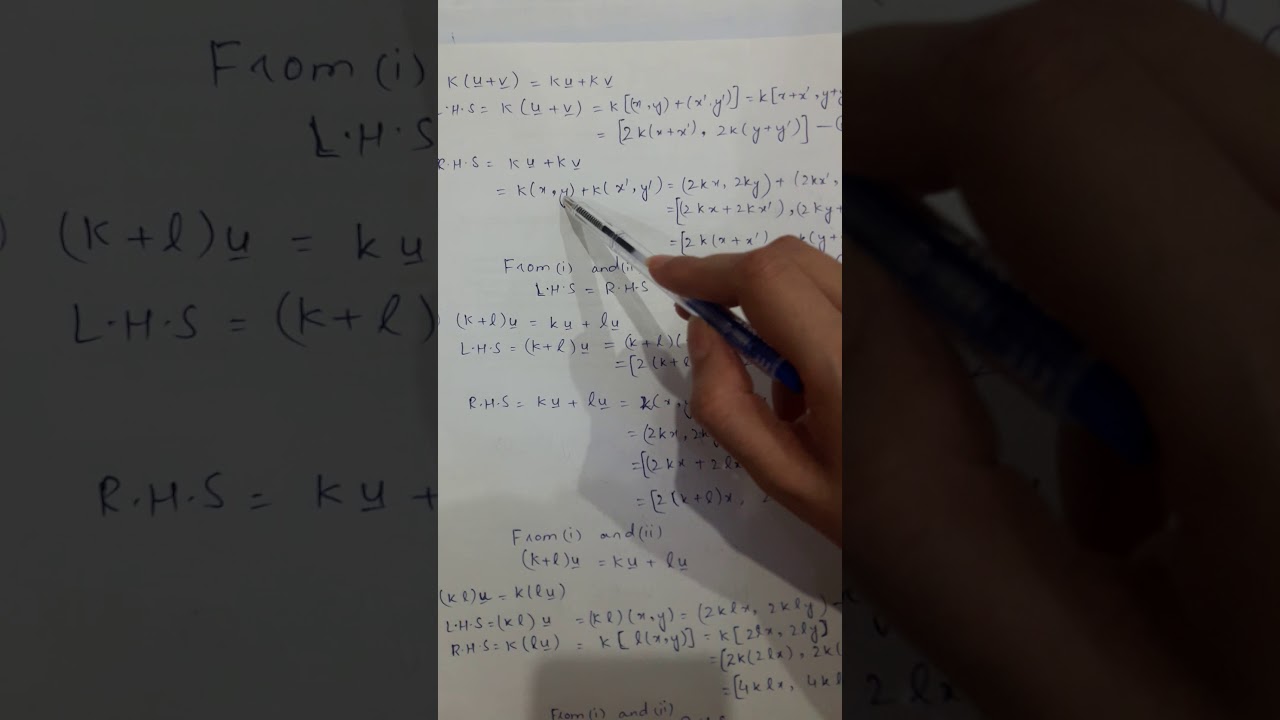 K(u+v) = ku+kv
L.H.S = K(u+v) = k[(x,y)+(x',y')] = k[x+x', y+y
= [2k(x+x'), 2k(y+y')] —(
R.H.S = ku+kv
= k(x,y)+k(x',y') = (2kx, 2ky) + (2kx',
=[(2kx+2kx'),(2ky+
=[2k(x+x') k(y+
From(i) and(ii
L.H.S = R.H.S
(k+l)u = ku+lu
L.H.S = (k+l)u = (k+l)(
=[2(k+l
R.H.S = ku+lu = k(x,
= (2kx, 2k
=[(2kx+2lx
=[2(k+l)x,
From(i) and(ii)
(k+l)u = ku+lu
(kl)u = k(lu)
L.H.S=(kl)u = (kl)(x,y) = (2klx, 2kly)
R.H.S=k(lu) = k[l(x,y)] = k[2lx, 2ly]
=[2k(2lx), 2k(
=[4klx, 4kl
From(i) and(ii)